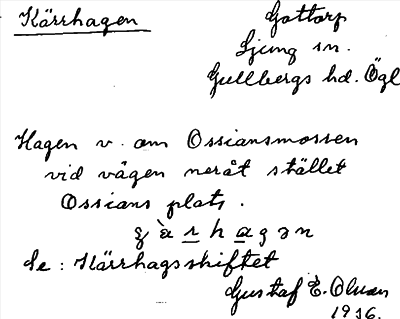 Kärrhagen
Gottorp
Ljung sn.
Gullbergs hd. Ögl
Hagen v. om Ossiansmossen
vid vägen neråt stället
Ossians plats.
Se: Kärrhagsskiftet
Gustaf E. Olsson
1916.